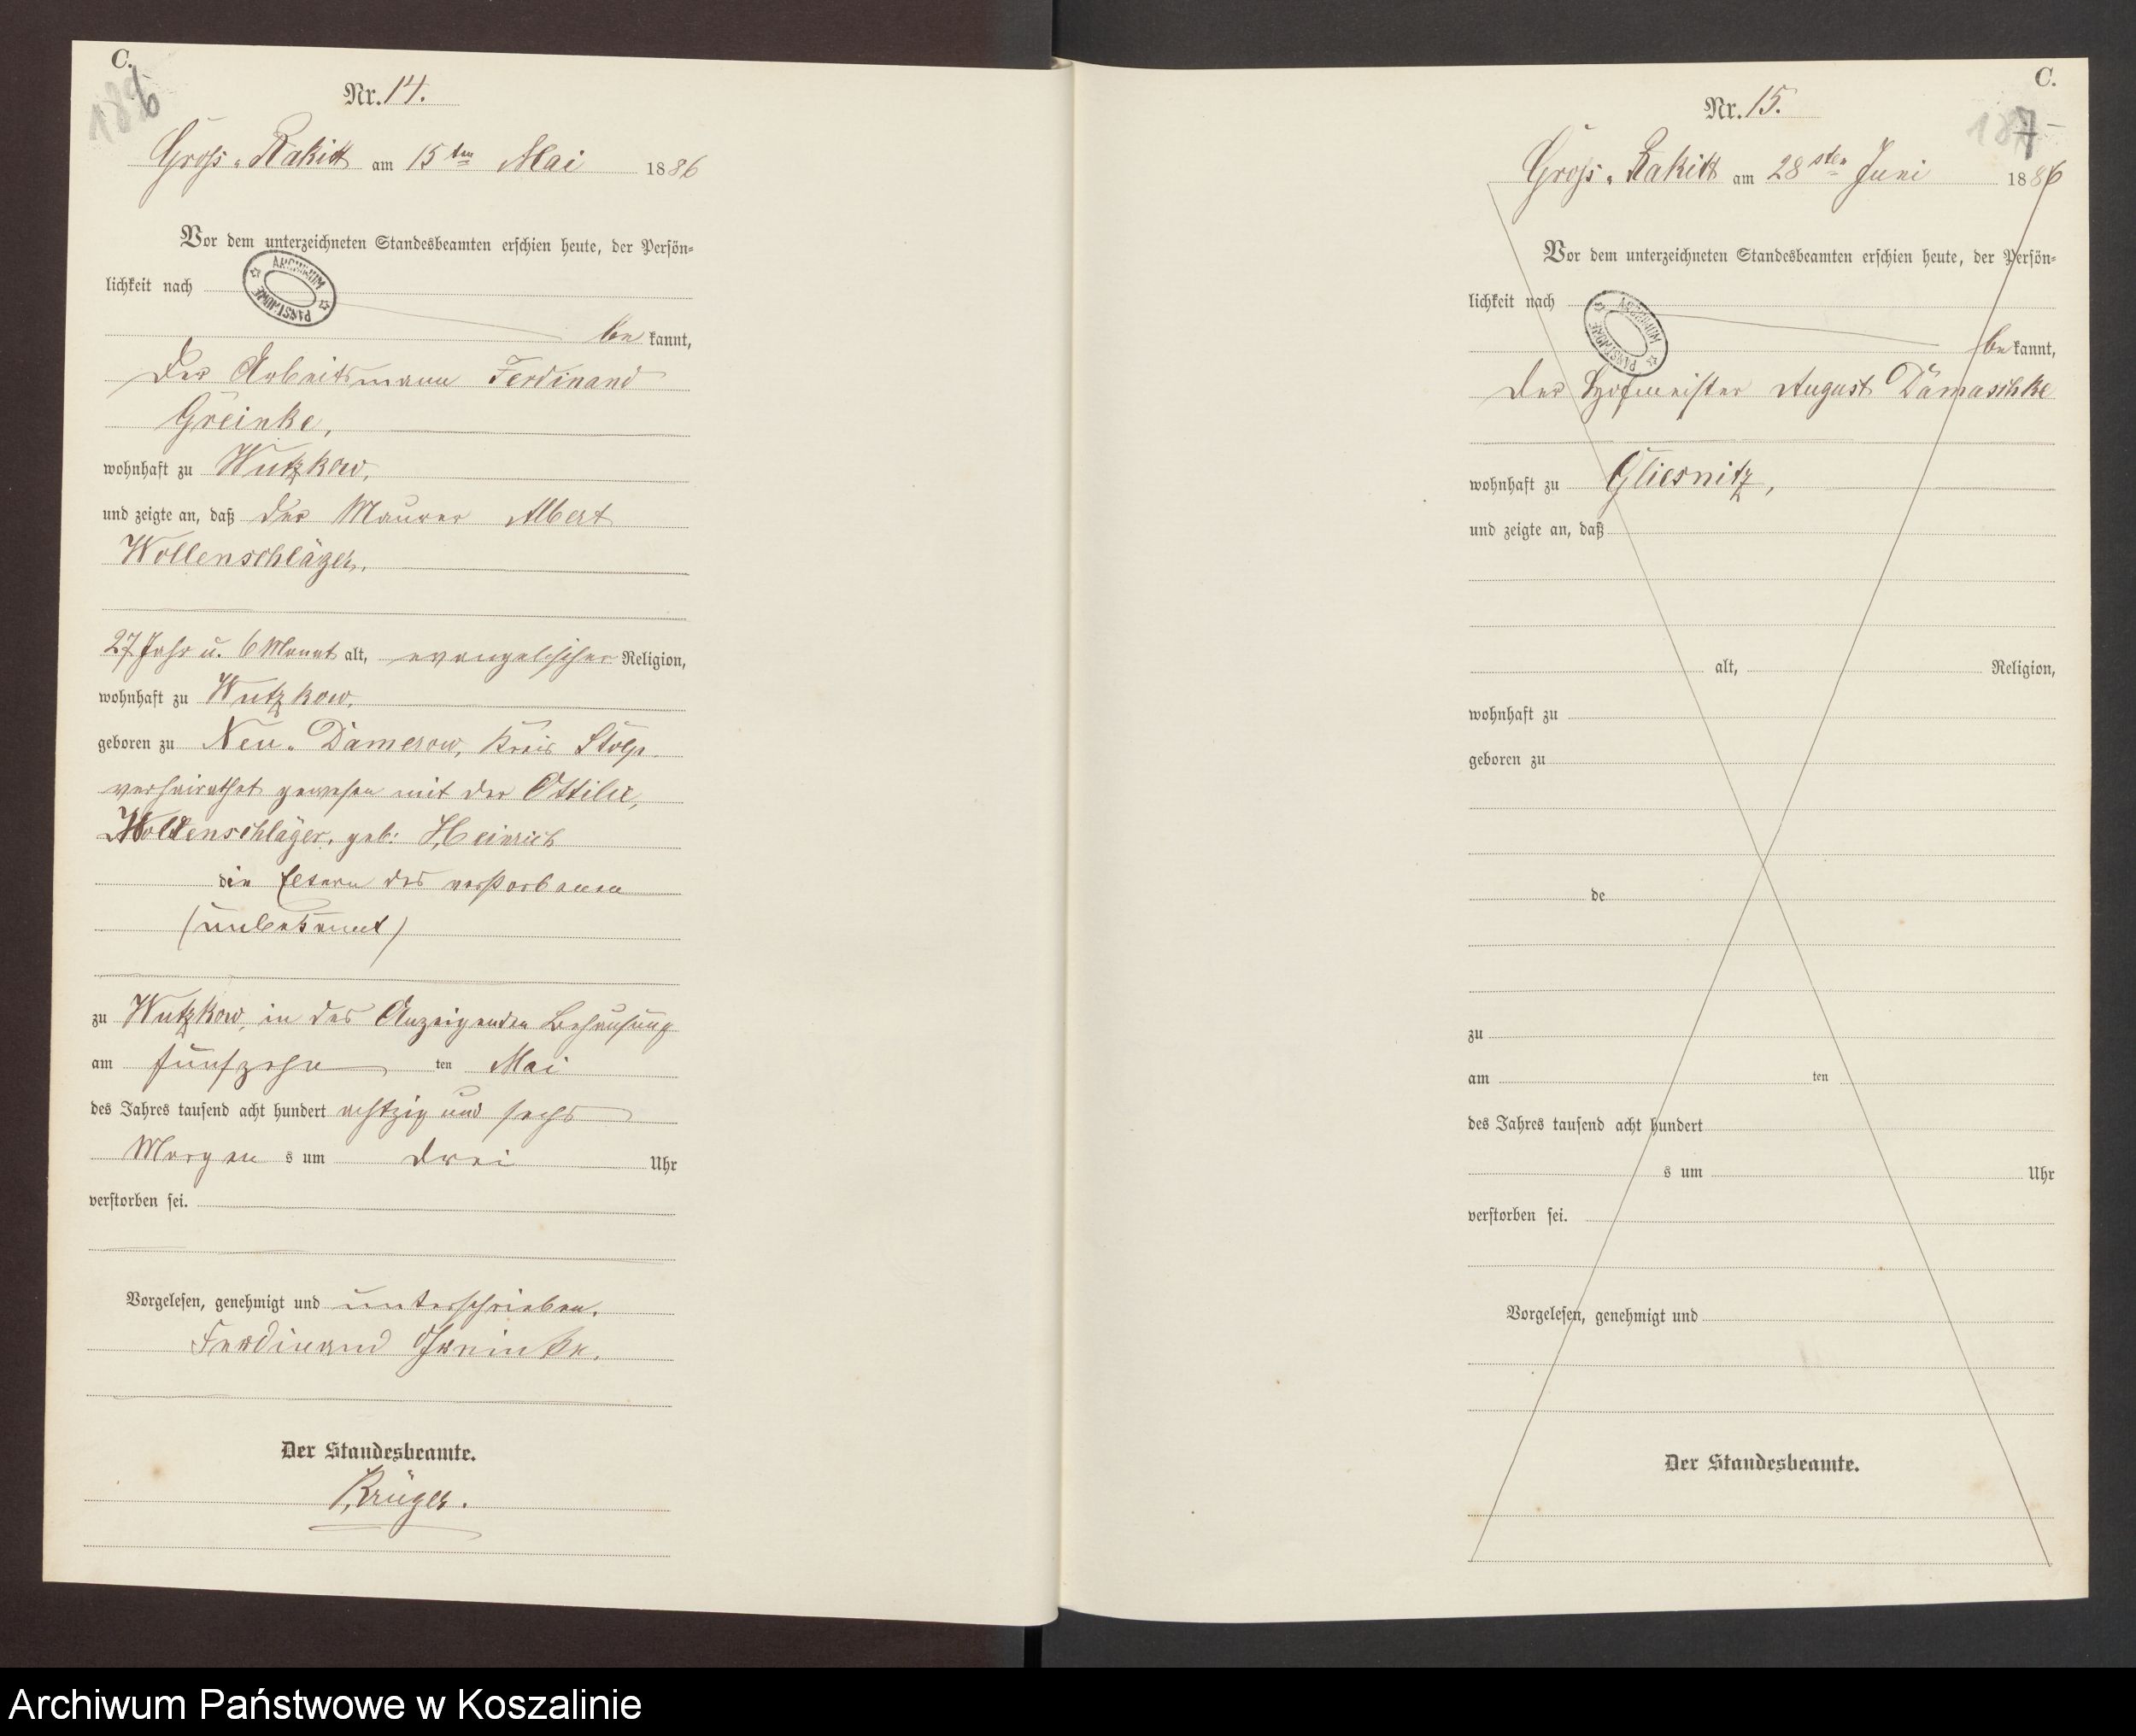 C.
186
Nr. 14.
Gross-Rakitt am 15ten Mai 1886
Vor dem unterzeichneten Standesbeamten erschien heute, der Persön-
lichkeit nach
ARCHIWUM PAŃSTWOWE
be kannt,
der Arbeitsmann Ferdinand
Greinke,
wohnhaft zu Wutzkow,
und zeigte an, daß der Maurer Albert
Wollenschläger,
27 Jahr u. 6 Monat alt, evangelischer Religion,
wohnhaft zu Wutzkow,
geboren zu Neu-Damerow, Kreis Stolp.
verheirathet gewesen mit der Ottilie,
Wollenschläger, geb: Heinrich
die Eltern des verstorbenen
(unbekannt)
zu Wutzkow, in des Anzeigenden Behausung
am fünfzehn ten Mai
des Jahres tausend acht hundert achtzig und sechs
Morgen s um drei Uhr
verstorben sei.
Vorgelesen, genehmigt und unterschrieben.
Ferdinand Greinke.
Der Standesbeamte.
Krüger.
C.
187
Nr. 15.
Gross-Rakitt am 28sten Juni 1886
Vor dem unterzeichneten Standesbeamten erschien heute, der Persön-
lichkeit nach
ARCHIWUM PAŃSTWOWE
be kannt,
der Hofmeister August Damaschke
wohnhaft zu Gliesnitz,
und zeigte an, daß
alt, Religion,
wohnhaft zu
geboren zu
de
zu
am ten
des Jahres tausend acht hundert
s um Uhr
verstorben sei.
Vorgelesen, genehmigt und
Der Standesbeamte.
Archiwum Państwowe w Koszalinie